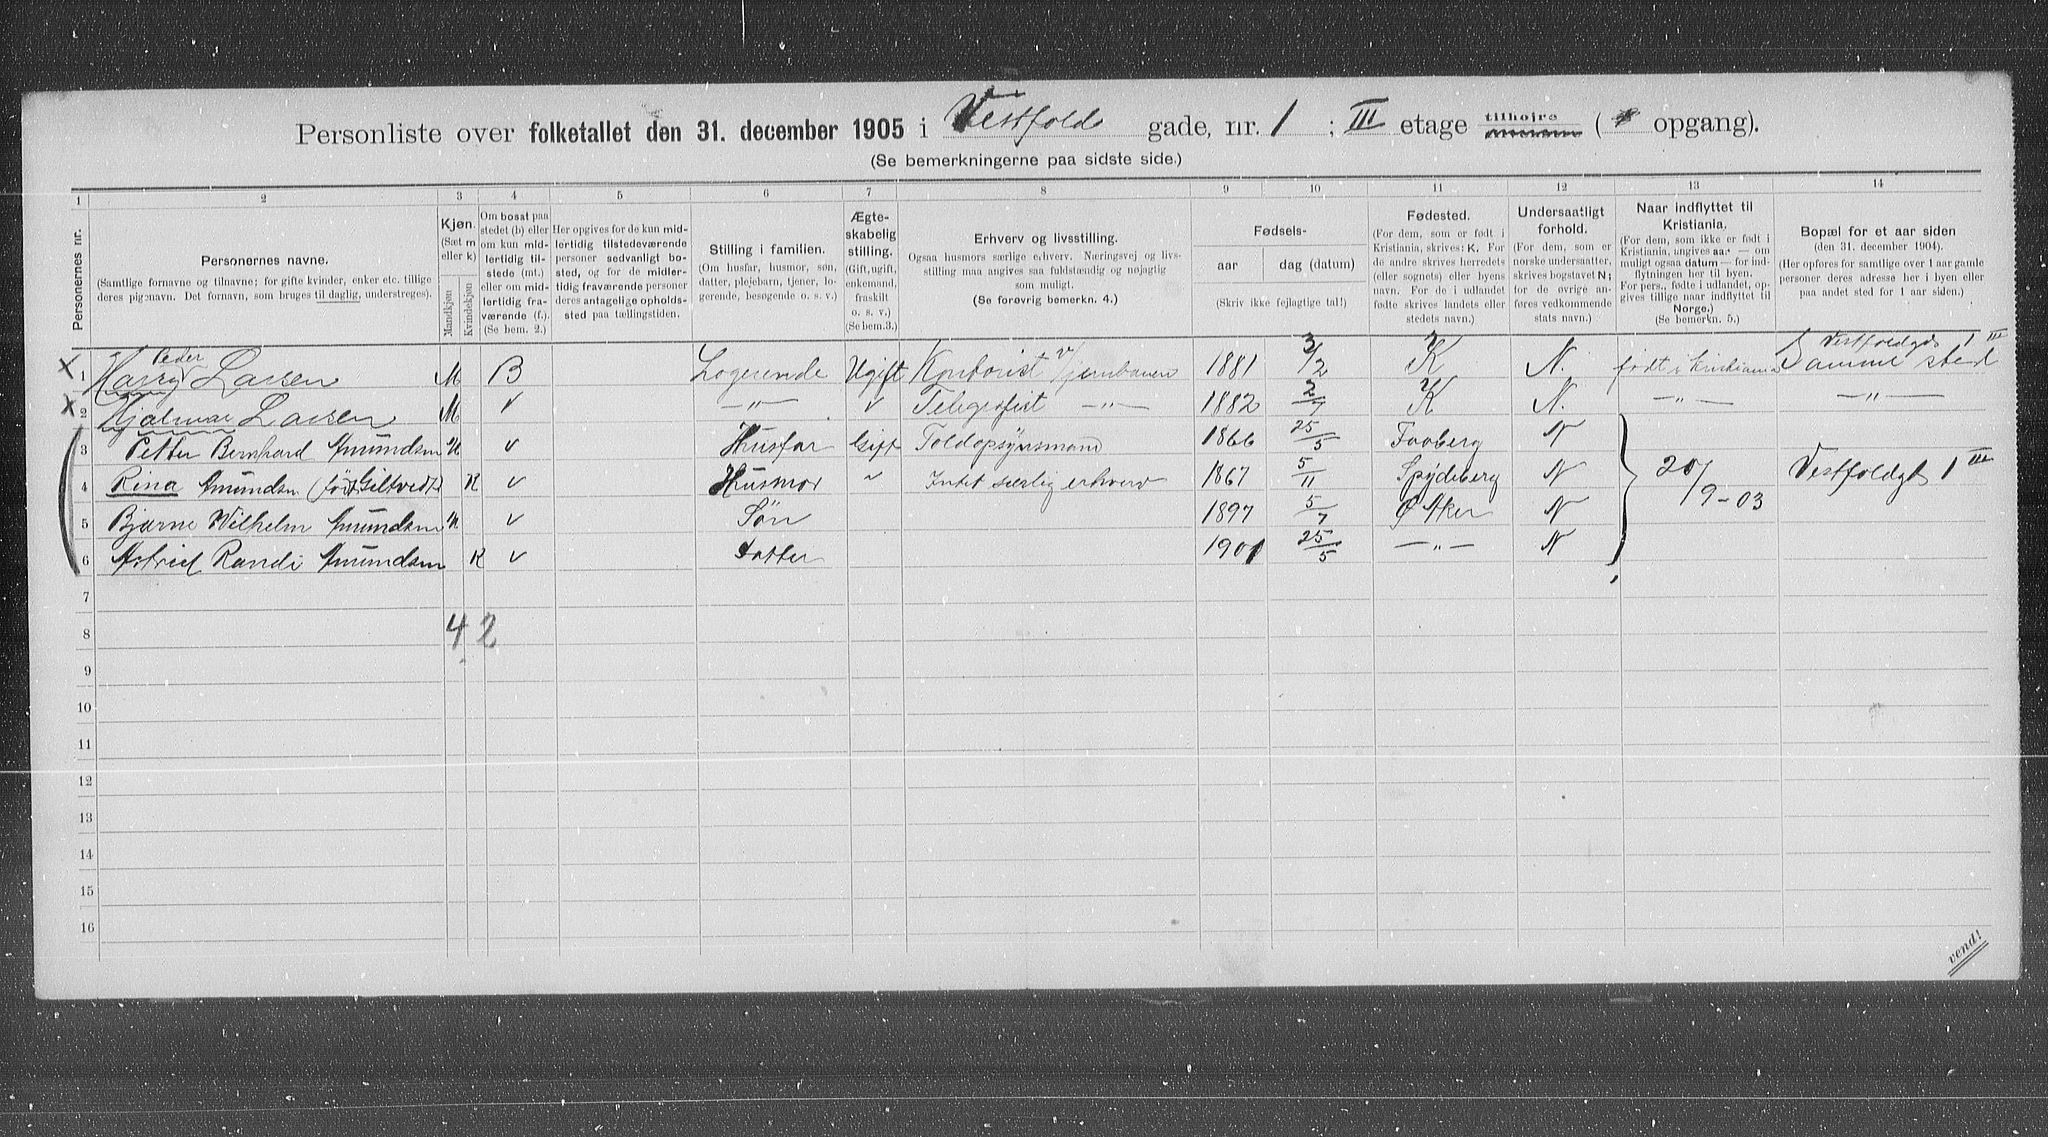 Personliste over folketallet den 31. december 1905 i Vestfold gade, nr. 1 ; III etage tilhøire ( opgang).
(Se bemerkningerne paa sidste side.)
1 2 3 4 5 6 7 8 9 10 11 12 13 14
Personernes nr.
Personernes navne.
(Samtlige fornavne og tilnavne; for gifte kvinder, enker etc. tillige
deres pigenavn. Det fornavn, som bruges til daglig, understreges).
Kjøn.
(Sæt m
eller k)
Mandkjøn
Kvindekjøn
Om bosat paa
stedet (b) eller
om kun mid-
lertidig til-
stede (mt.)
eller om mid-
lertidig fra-
værende (f.).
(Se bem. 2.)
Her opgives for de kun mid-
lertidig tilstedeværende
personer sedvanligt bo-
sted, og for de midler-
tidig fraværende personer
deres antagelige opholds-
sted paa tællingstiden.
Stilling i familien.
(Om husfar, husmor, søn,
datter, plejebarn, tjener, lo-
gerende, besøgende o. s. v.)
Ægte-
skabelig
stilling.
(Gift, ugift,
enkemand,
fraskilt
o. s. v.)
(Se bem.3.)
Erhverv og livsstilling.
Ogsaa husmors særlige erhverv. Næringsvej og livs-
stilling maa angives saa fuldstændig og nøjagtig
som muligt.
(Se forøvrig bemerkn. 4.)
Fødsels-
aar dag (datum)
(Skriv ikke fejlagtige tal!)
Fødested.
(For dem, som er født i
Kristiania, skrives: K. For
de andre skrives herredets
(eller sognets) eller byens
navn. For de i udlandet
fødte skrives landets eller
stedets navn.)
Undersaatligt
forhold.
(For dem, som er
norske undersaatter,
skrives bogstavet N;
for de øvrige an-
føres vedkommende
stats navn.)
Naar indflyttet til
Kristiania.
(For dem, som ikke er født i
Kristiania, angives aar — om
muligt ogsaa datum — for ind-
flytningen her til byen.
For pers., fødte i udlandet, op-
gives tillige naar indflyttet til
Norge.)
(Se bemerkn. 5.)
Bopæl for et aar siden
(den 31. december 1904).
(Her opføres for samtlige over 1 aar gamle
personer deres adresse her i byen eller
paa andet sted for 1 aar siden.)
Peder Vestfoldgd 1 III
X 1 Harry Larsen M B Logerende Ugift Kontorist v/jernbanen 1881 3/2 K N. født i Kristiania Samme sted
X 2 Hjalmar Larsen M v v Telegrafist —"— 1882 2/7 K N. —"— —"—
3 Petter Bernhard Amundsen M v Husfar Gift Toldopsynsmand 1866 25/5 Faaberg N
4 Rina Amundsen (født Giltvedt) K v Husmor v Intet særlig erhverv 1867 5/11 Spydeberg N 20/9-03 Vestfoldgt 1 III
5 Bjarne Wilhelm Amundsen M v Søn 1897 5/7 Ø Aker N
6 Astrid Randi Amundsen K v Datter 1901 25/5 —"— N
7
8 4 2
9
10
11
12
13
14
15
16
vend!